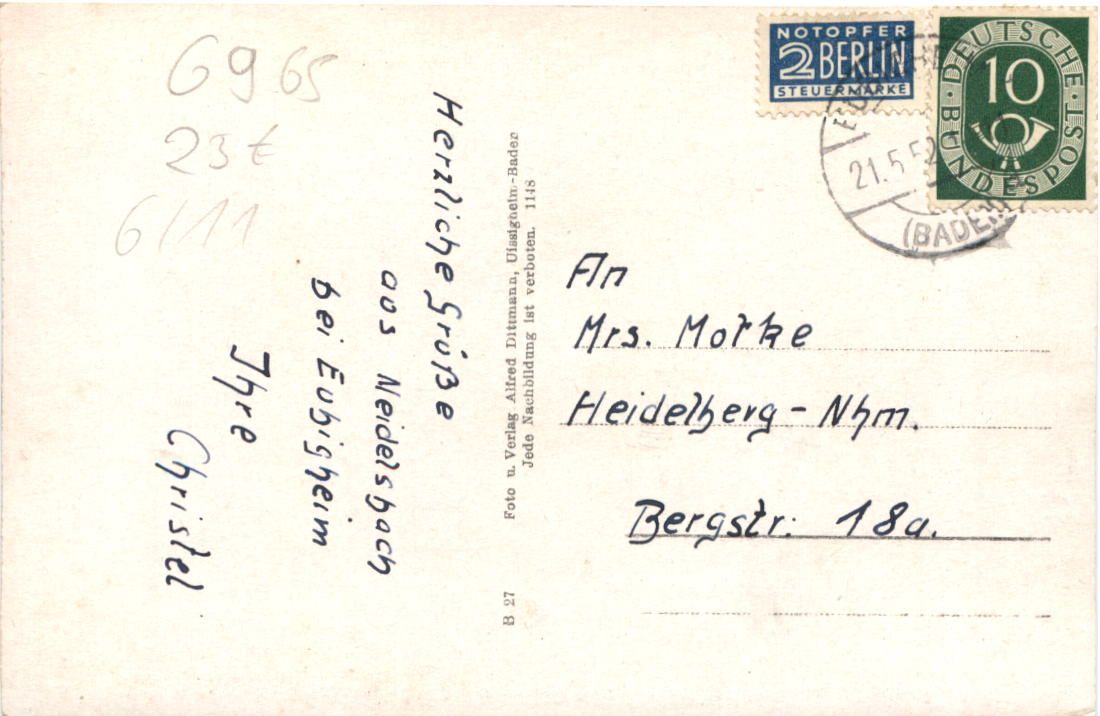 G965
23€
6/11
Herzliche Grüße
aus Neidelsbach
bei Eubigheim
Ihre
Christel
Foto u. Verlag Alfred Dittmann, Uissigheim-Baden
Jede Nachbildung ist verboten. 1148
B 27
NOTOPFER
2 BERLIN
STEUERMARKE
DEUTSCHE
10
BUNDESPOST
21.5.52
(BADEN)
An
Mrs. Motke
Heidelberg - Nhm.
Bergstr. 18a.